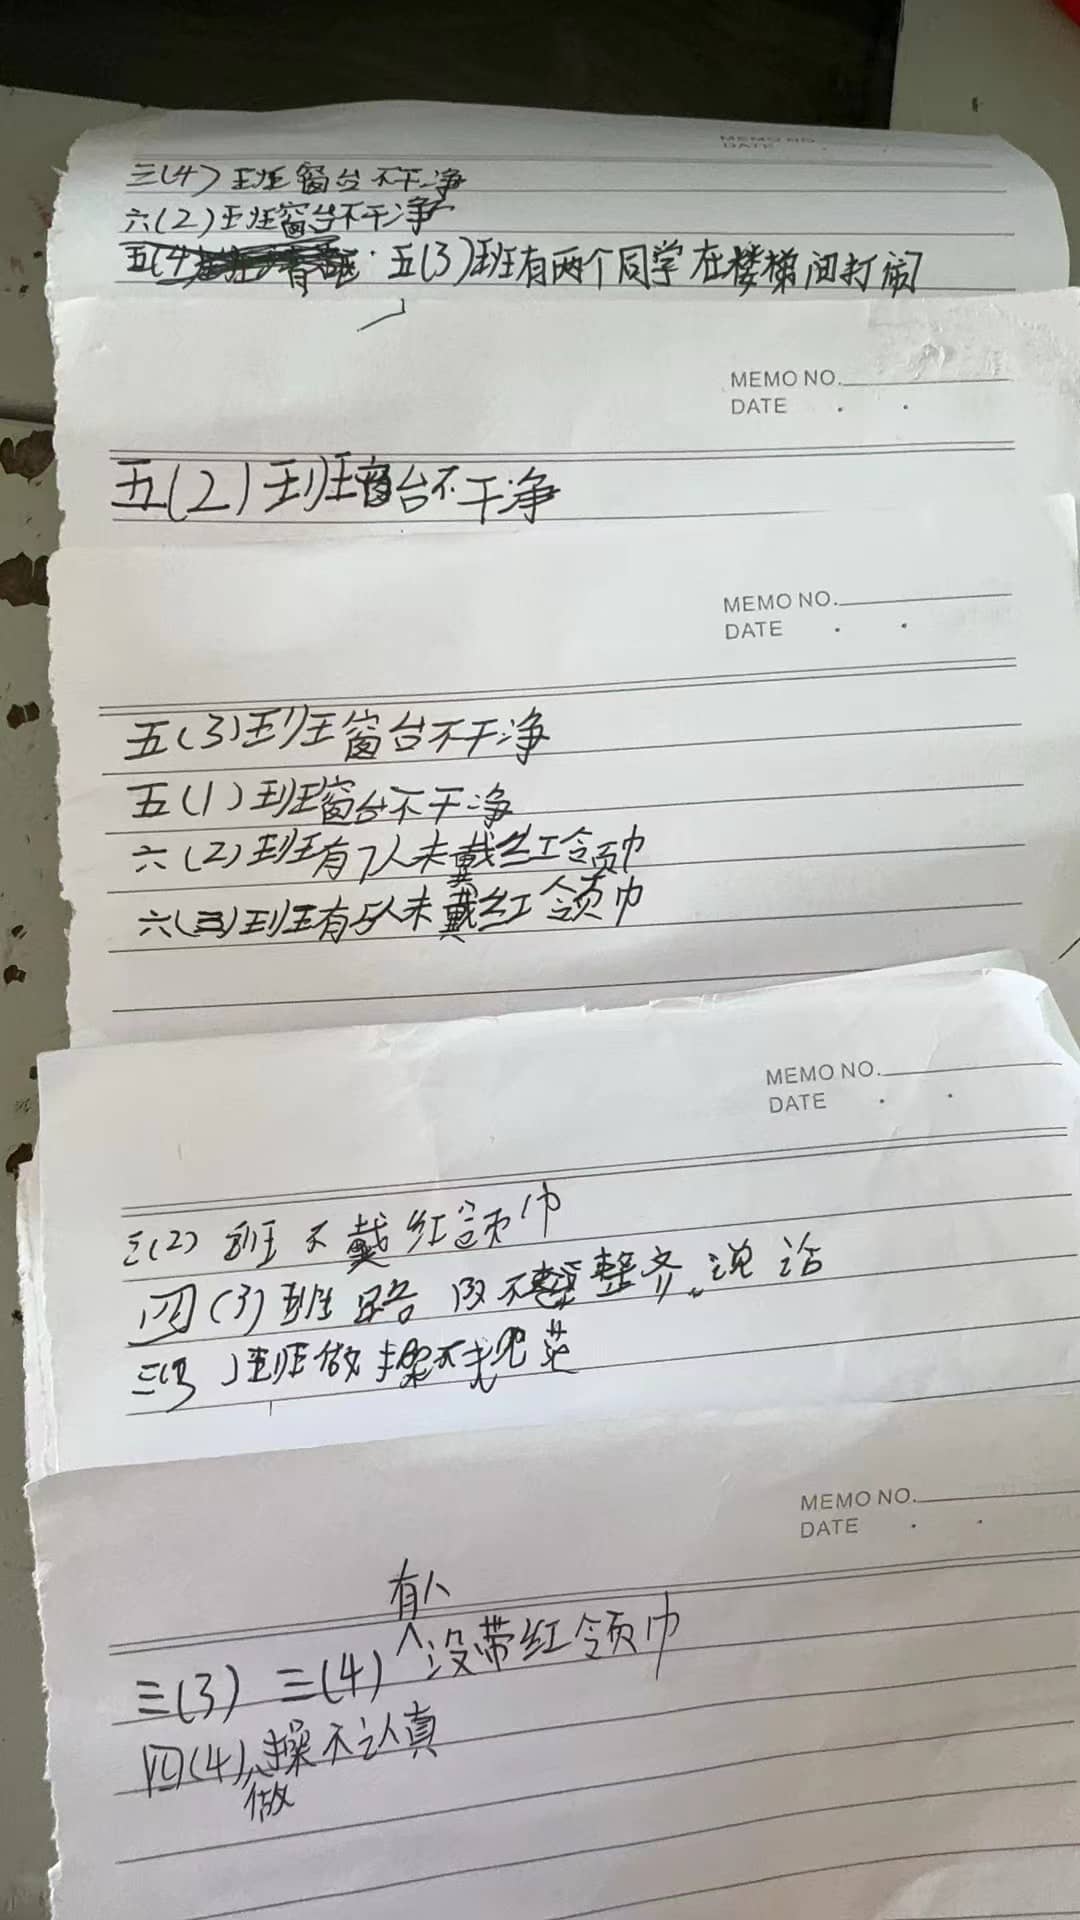 MEMO NO.
DATE
三(4)班窗台不干净
六(2)班窗台不干净
五(4 五(3)班有两个同学在楼梯间打闹
MEMO NO.
DATE
五(2)班窗台不干净
MEMO NO.
DATE
五(3)班窗台不干净
五(1)班窗台不干净
六(2)班有7人未戴红领巾
六(三)班有5人未戴红领巾
MEMO NO.
DATE
三(2)班不戴红领巾
四(3)班路队不整齐。说话
班做操不规范
MEMO NO.
DATE
有人
三(3) 三(4) 没带红领巾
四(4)操不认真
做